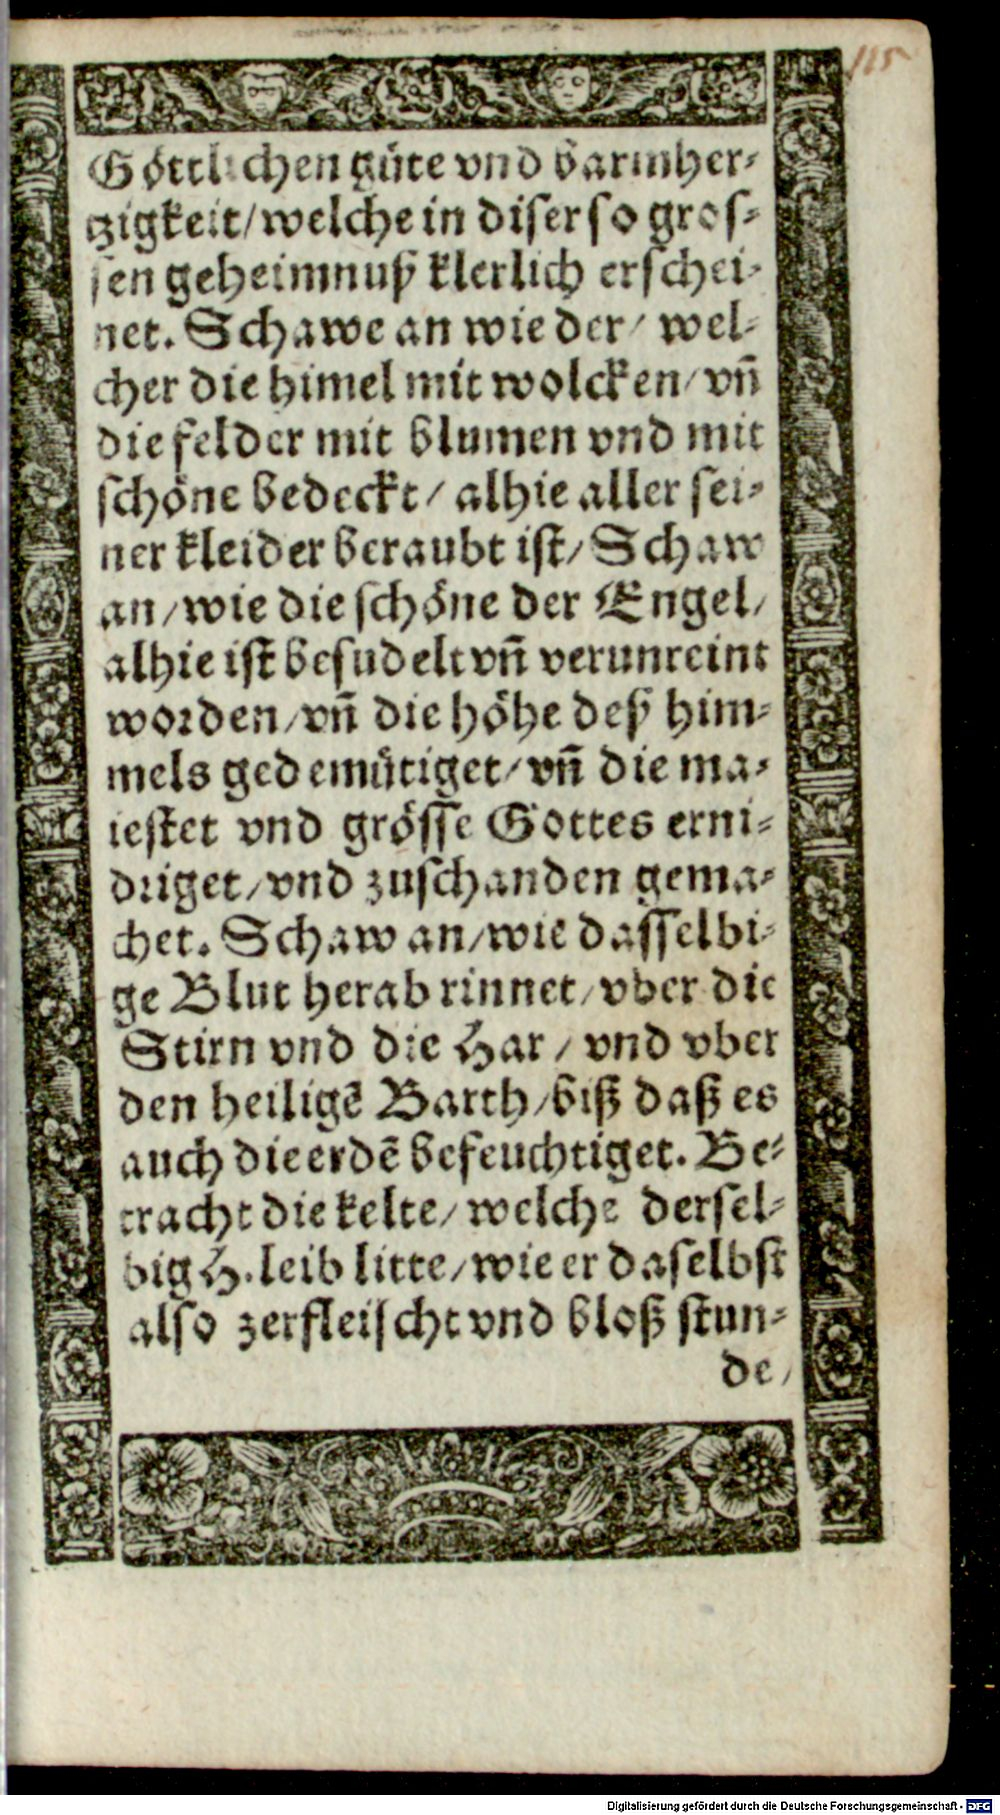 115
Göttlichen güte vnd barmher-
tzigkeit/welche in diser so gros-
sen geheimnuß klerlich erschei-
net. Schawe an wie der/ wel-
cher die himel mit wolcken/vñ
die felder mit blumen vnd mit
schöne bedeckt/ alhie aller sei-
ner kleider beraubt ist/ Schaw
an/wie die schöne der Engel/
alhie ist besudelt vñ verunreint
worden/vñ die höhe deß him-
mels gedemütiget/vñ die ma-
iestet vnd grösse Gottes erni-
driget/vnd zuschanden gema-
chet. Schaw an/wie dasselbi-
ge Blut herab rinnet/vber die
Stirn vnd die Har/ vnd vber
den heiligẽ Barth/biß daß es
auch die erdẽ befeuchtiget. Be-
tracht die kelte/welche dersel-
big H. leib litte/wie er daselbst
also zerfleischt vnd bloß stun-
de/
Digitalisierung gefördert durch die Deutsche Forschungsgemeinschaft - DFG